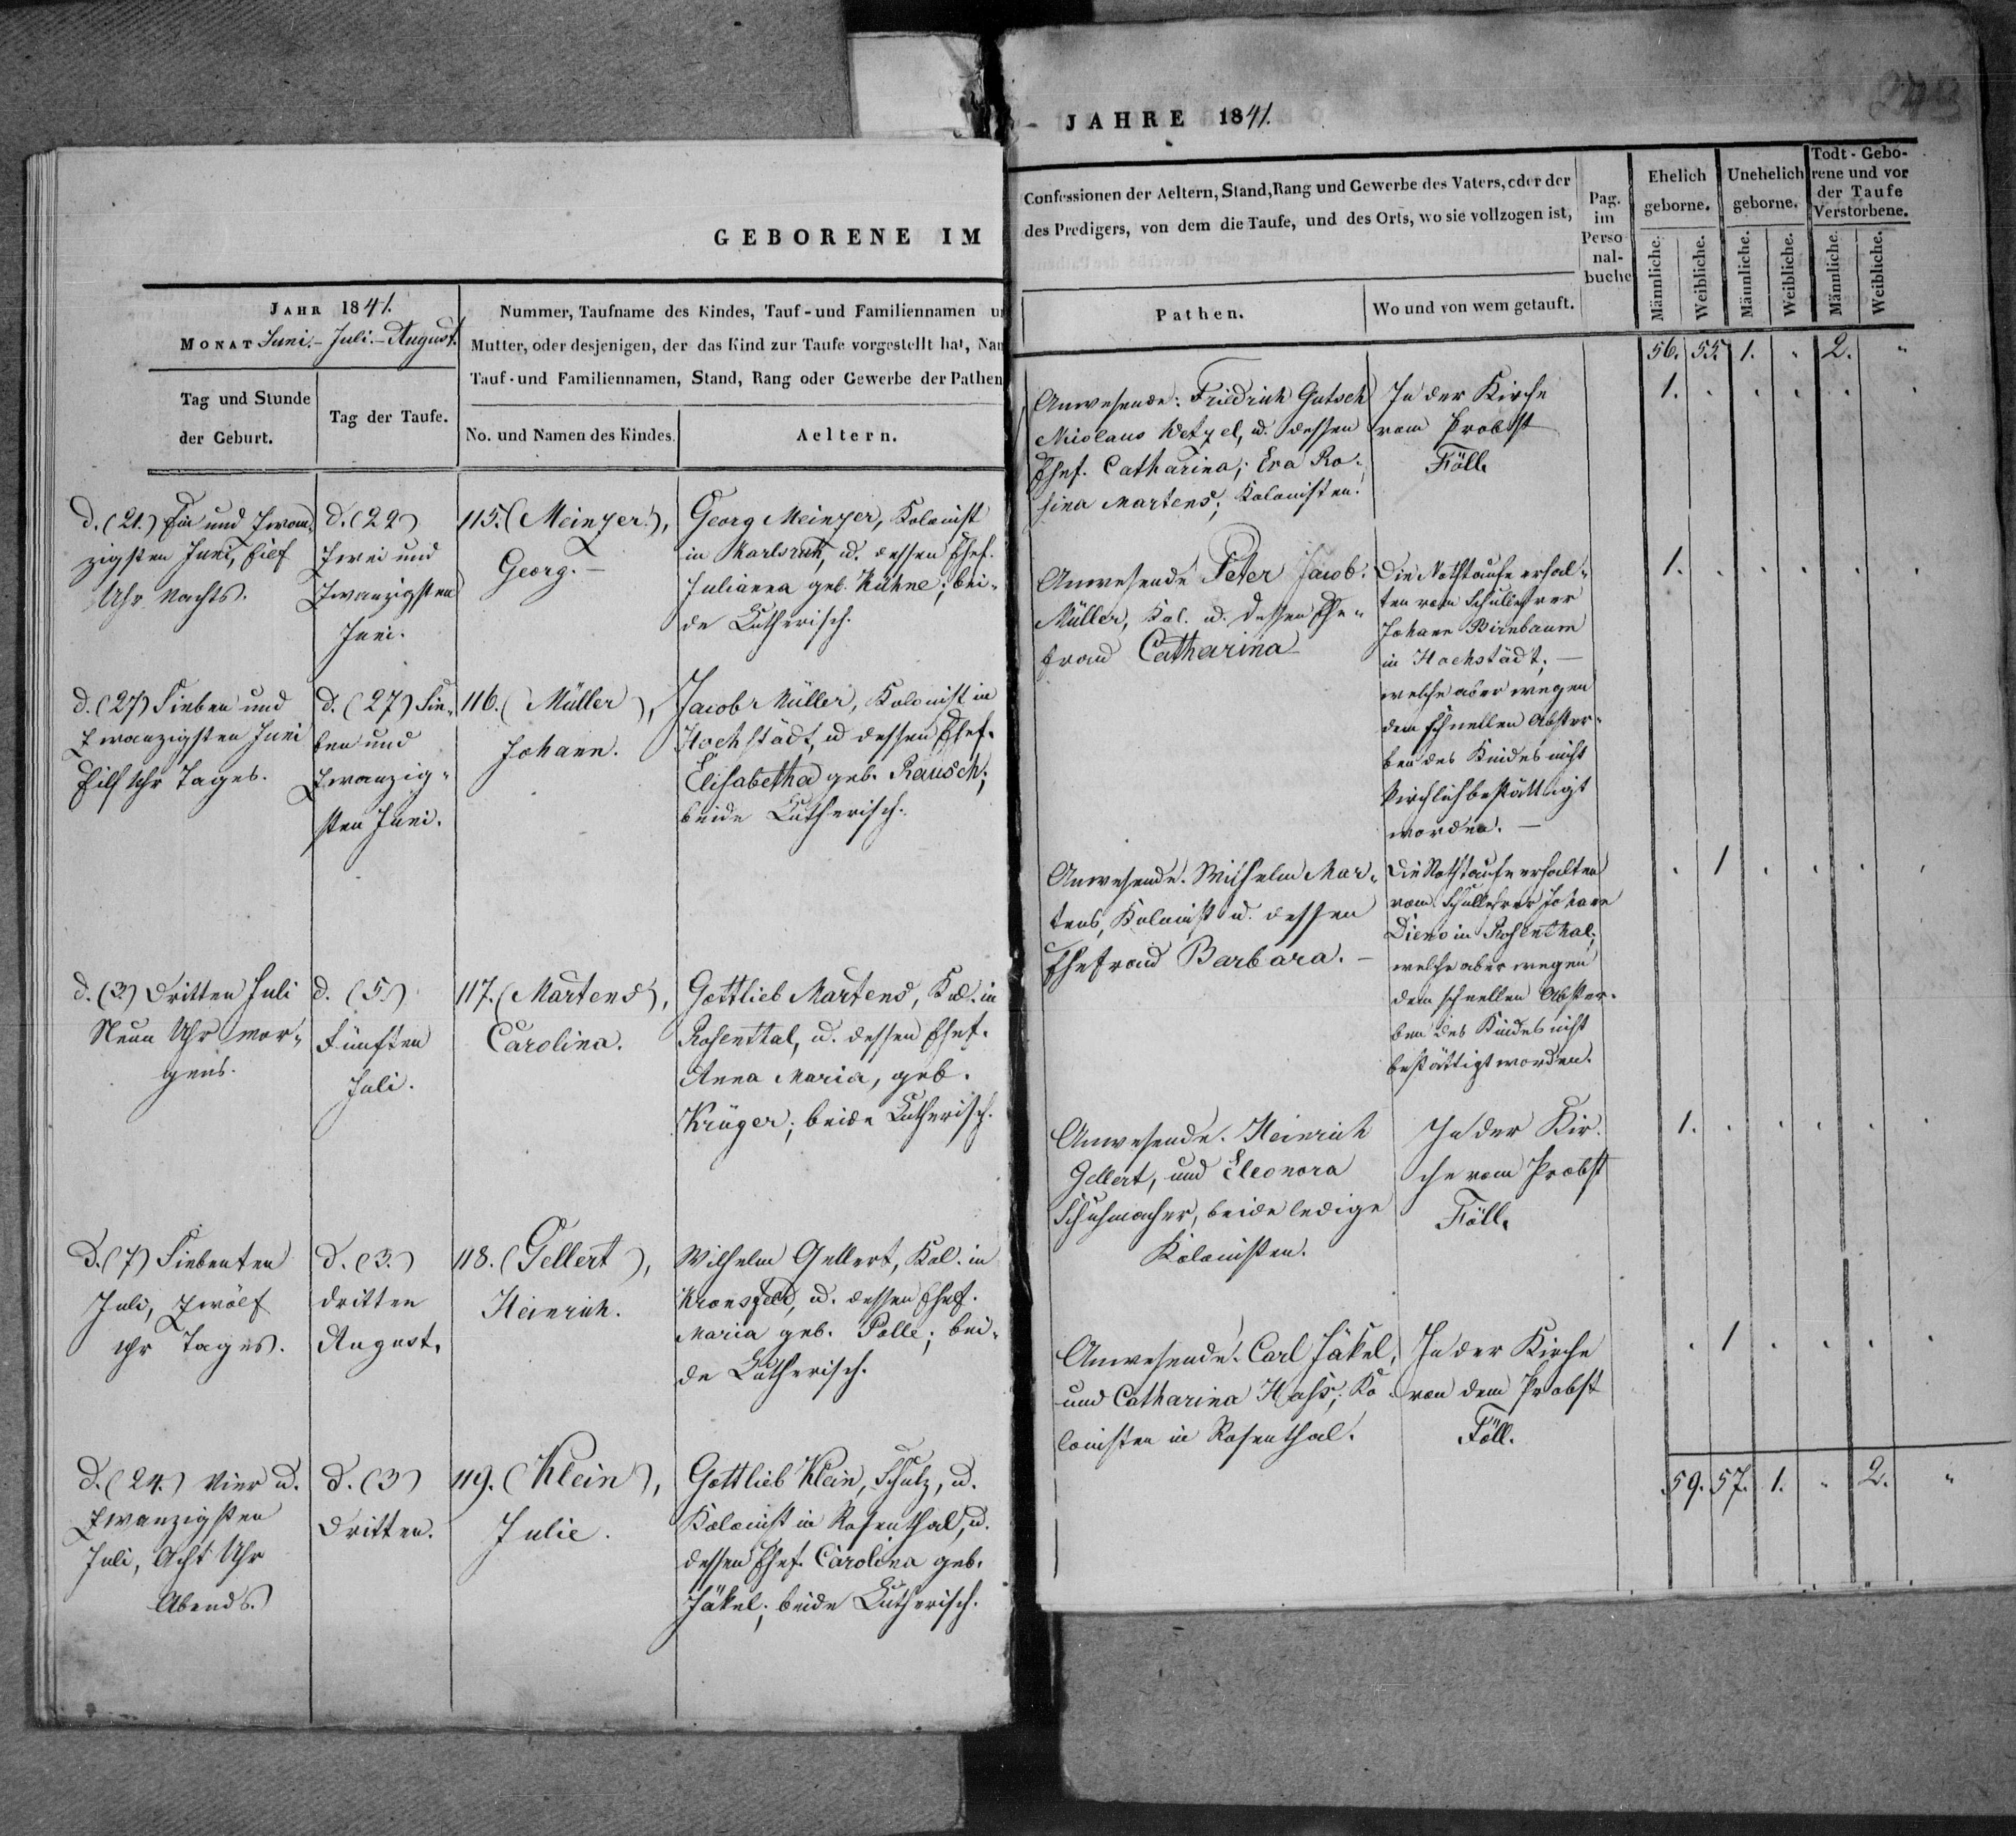 GEBORENE IM
JAHR 1841.
MONAT Juni.- Juli.-August.
Nummer, Taufname des Kindes, Tauf- und Familiennamen
Mutter, oder desjenigen, der das Kind zur Taufe vorgestellt hat,
Tauf- und Familiennamen, Stand, Rang oder Gewerbe der Pathen
Tag und Stunde
der Geburt.
Tag der Taufe.
No. und Namen des Kindes.
Aeltern.
d. (21.) Ein und Zwan-
zigsten Juni, Eilf
Uhr Nachts.
d. (22)
Zwei und
Zwanzigsten
Juni.
115. (Meinzer),
Georg. -
Georg Meinzer, Kolonist
in Karlsruh, u. dessen Ehef.
Julianna geb. Kühne; bei-
de Lutherisch.
d. (27) Sieben und
Zwanzigsten Juni
Eilf Uhr Tages.
d. (27) Sie-
ben und
Zwanzig-
sten Juni.
116. (Müller),
Johann.
Jacob Müller, Kolonist in
Hochstädt, u dessen Ehef.
Elisabetha geb. Rausch;
beide Lutherisch.
d. (3.) Dritten Juli
Neun Uhr mor-
gens.
d. (5.)
Fünften
Juli.
117. (Martens),
Carolina.
Gottlieb Martens, Kol. in
Rosenthal, u. dessen Ehef.
Anna Maria, geb.
Krüger; beide Lutherisch.
d. (7) Siebenten
Juli, Zwölf
Uhr Tages.
d. (3.)
dritten
August.
118. (Gellert),
Heinrich.
Wilhelm Gellert, Kol. in
Kronsfeld, u. dessen Ehef.
Maria geb. Polle; bei-
de Lutherisch.
d. (24.) Vier u.
Zwanzigsten
Juli, Acht Uhr
Abends.
d. (3)
Dritten.
119. (Klein),
Julie.
Gottlieb Klein, Schulz, u.
Kolonist in Rosenthal, u.
dessen Ehef. Carolina geb.
Jäkel; beide Lutherisch.
JAHRE 1841.
Confessionen der Aeltern, Stand, Rang und Gewerbe des Vaters, oder der
des Predigers, von dem die Taufe, und des Orts, wo sie vollzogen ist,
Pathen.
Wo und von wem getauft.
Pag.
im
Perso
nal-
buche
Ehelich
geborne.
Unehelich
geborne.
Todt-Gebo-
rene und vor
der Taufe
Verstorbene.
Männliche.
Weibliche.
Männliche.
Weibliche.
Männliche.
Weibliche.
56. 55. 1. . 2. "
Anwesende: Friedrich Gutsch
Nicolaus Wetzel, u. dessen
Ehef. Catharina; Eva Ro-
sina Martens; Kolonisten.
In der Kirche
vom Probst
Föll.
1. . . . . .
Anwesende Peter Jacob
Müller, Kol. u. dessen Ehe-
frau Catharina
Die Nothtaufe erhal-
ten vom Schullehrer
Johann Birnbaum
in Hochstädt; -
welche aber wegen
dem schnellen Abster-
ben des Kindes nicht
kirchlich bestättigt
worden. -
1. . . . . .
Anwesende. Wilhelm Mar-
tens, Kolonist u. dessen
Ehefrau Barbara. -
Die Nothtaufe erhalten
vom Schullehrer Johann
Dieno in Rosenthal;
welche aber wegen
dem schnellen Abster-
ben des Kindes nicht
bestättigt worden.
. 1 . . . .
Anwesende. Heinrich
Gellert, und Eleonora
Schuhmacher, beide ledige
Kolonisten.
In der Kir-
che vom Probst
Föll.
1. . . . . .
Anwesende. Carl Jäkel,
und Catharina Hass; Ko-
lonisten in Rosenthal.
In der Kirche
von dem Probst
Föll.
. 1 . . . .
59. 57. 1. " 2. "